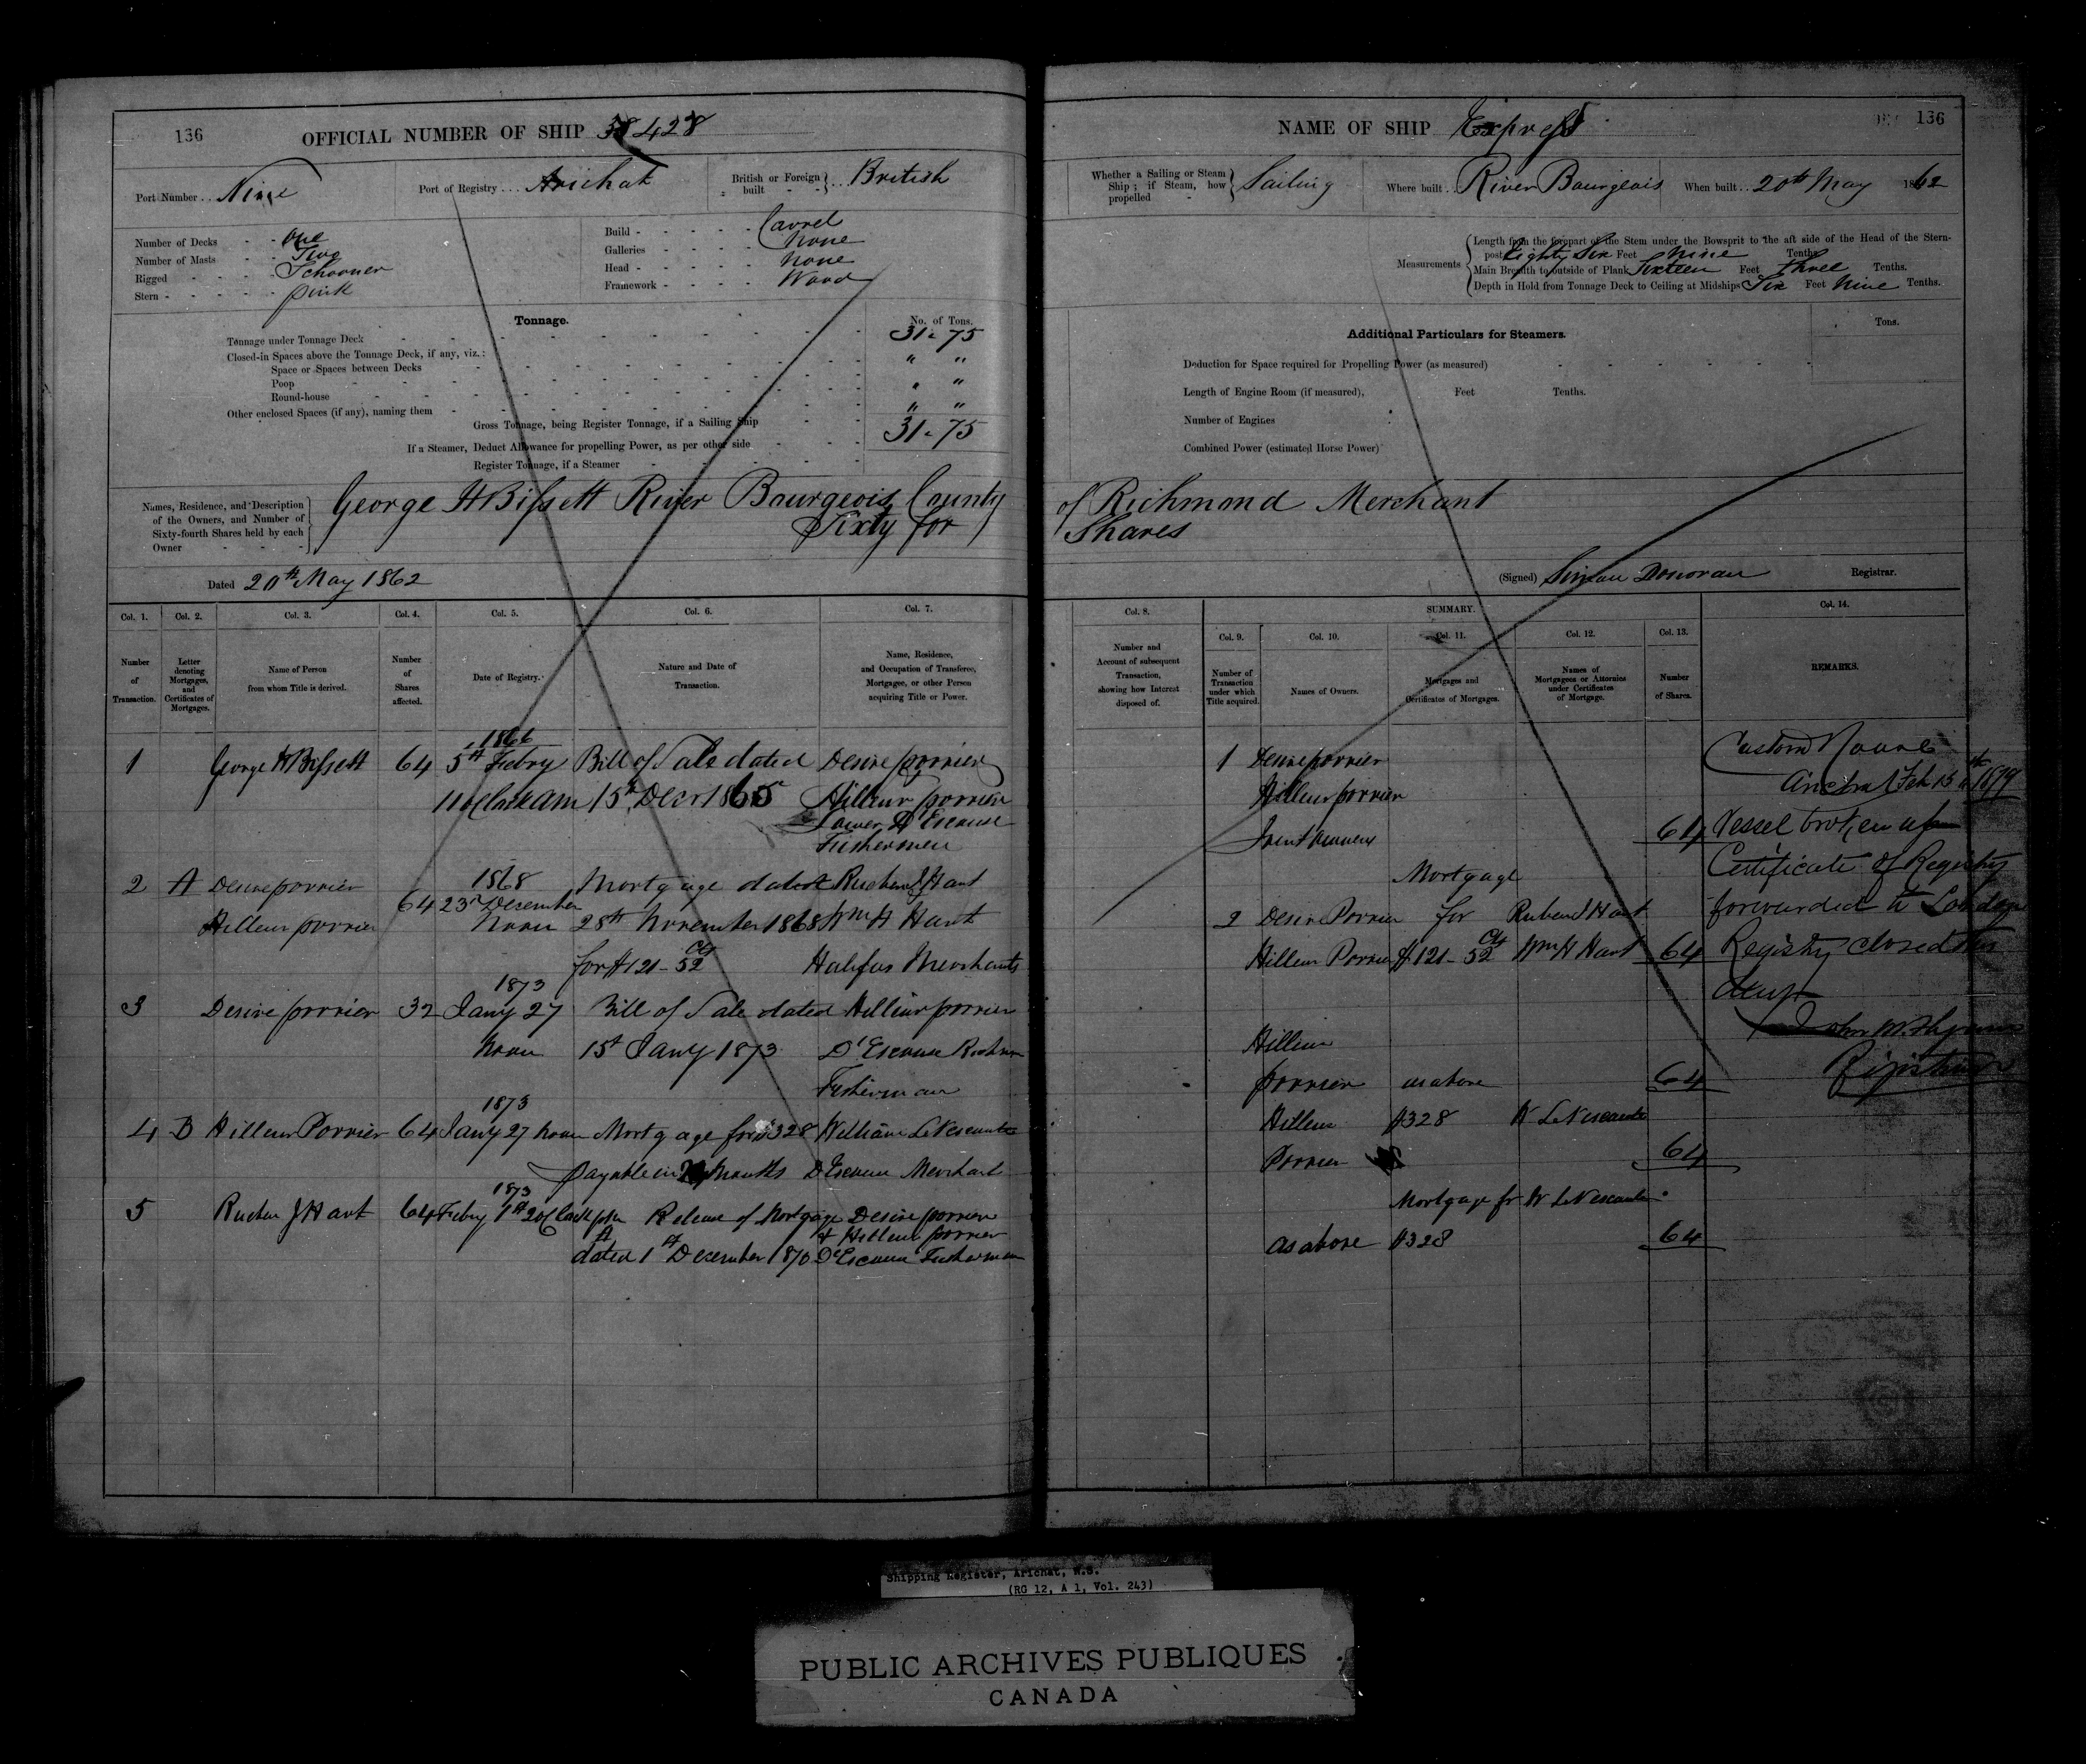 136
OFFICIAL NUMBER OF SHIP 38428
Port Number . . Nine
Port of Registry . . . Arichat
British or Foreign built - - } . . British
Number of Decks - - One
Number of Masts - - Two
Rigged - - - Schooner
Stern - - - - - pink
Build - - - - - Carvel
Galleries - - - - None
Head - - - - - None
Framework - - - - Wood
Tonnage.
No. of Tons.
Tonnage under Tonnage Deck 31 . 75
Closed-in Spaces above the Tonnage Deck, if any, viz.:
Space or Spaces between Decks " "
Poop " "
Round-house
Other enclosed Spaces (if any), naming them " "
Gross Tonnage, being Register Tonnage, if a Sailing Ship 31 . 75
If a Steamer, Deduct Allowance for propelling Power, as per other side
Register Tonnage, if a Steamer
Names, Residence, and Description of the Owners, and Number of Sixty-fourth Shares held by each Owner
George H Bissett River Bourgeois County
Sixty for
Dated 20th May 1862
Col. 1. Col. 2. Col. 3. Col. 4. Col. 5. Col. 6. Col. 7.
Number of Transaction.
Letter denoting Mortgages, and Certificates of Mortgages.
Name of Person from whom Title is derived.
Number of Shares affected.
Date of Registry.
Nature and Date of Transaction.
Name, Residence, and Occupation of Transferee, Mortgagee, or other Person acquiring Title or Power.
1866
1 George H Bissett 64 5th Febry Bill of Sale dated Desire porrier
11 oClock am 15th Decr 1865 Hilleur porrier
Lower D'Escouse
Fishermen
1868
2 A Desire porrier 64 23rd December Mortgage dated Ruben J Hart
Hilleur porrier Noon 28th November 1868 Wm H Hart
for $121 - 52 Cts Halifax Merchants
1873
3 Desire porrier 32 Jany 27 Bill of Sale dated Hilleur porrier
Noon 15th Jany 1873 D'Escouse
Fisherman
1873
4 B Hilleur Porrier 64 Jany 27 Noon Mortgage for $328 William LeVescounte
payable in months D'Escouse Merchant
1873
5 Ruben J Hart 64 Febry 1st 2 oClock pm Release of Mortgage Desire porrier
& Hilleur porrier
dated 1st December 1870 D'Escouse Fisherman
NAME OF SHIP Express
136
Whether a Sailing or Steam Ship; if Steam, how propelled - } Sailing
Where built . . River Bourgeois
When built . . 20th May 1862
Measurements
Length from the forepart of the Stem under the Bowsprit to the aft side of the Head of the Stern-
post Eighty Six Feet Nine Tenths.
Main Breadth to outside of Plank Sixteen Feet three Tenths.
Depth in Hold from Tonnage Deck to Ceiling at Midships Six Feet Nine Tenths.
Additional Particulars for Steamers.
Tons.
Deduction for Space required for Propelling Power (as measured)
Length of Engine Room (if measured), Feet Tenths.
Number of Engines
Combined Power (estimated Horse Power)
of Richmond Merchant
Shares
(Signed) Simon Donovan Registrar.
Col. 8. SUMMARY. Col. 14.
Col. 9. Col. 10. Col. 11. Col. 12. Col. 13.
Number and Account of subsequent Transaction, showing how Interest disposed of.
Number of Transaction under which Title acquired.
Names of Owners.
Mortgages and Certificates of Mortgages.
Names of Mortgagees or Attornies under Certificates of Mortgage.
Number of Shares.
REMARKS.
1 Desire porrier
Hilleur porrier
Joint owners 64
Mortgage
2 Desire Porrier for Ruben J Hart
Hilleur Porrier $121 - 52 Cts Wm H Hart 64
Hilleur
porrier as above 64
Hilleur $328 W LeVescounte
Porrier 64
Mortgage for W LeVescounte
as above $328 64
Custom House
Arichat Feb 15th 1879
Vessel broken up
Certificate of Registry
forwarded to London
Registry closed this
day
Registrar
Shipping Register, Arichat, N.S.
(RG 12, A 1, Vol. 243)
PUBLIC ARCHIVES PUBLIQUES
CANADA